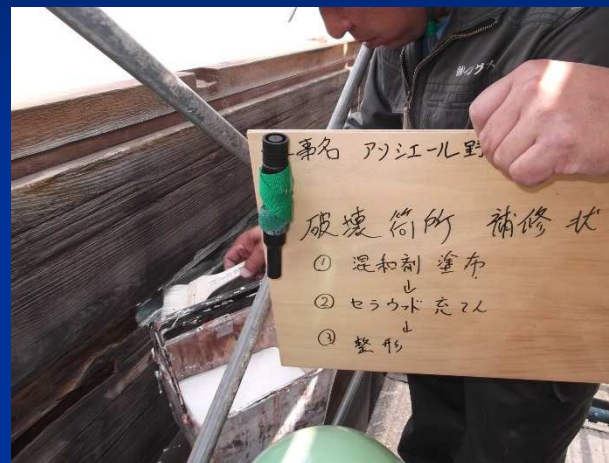 事名 アンシエール野
破壊箇所 補修状
① 混和剤 塗布
↓
② セラウッド 充てん
↓
③ 整形